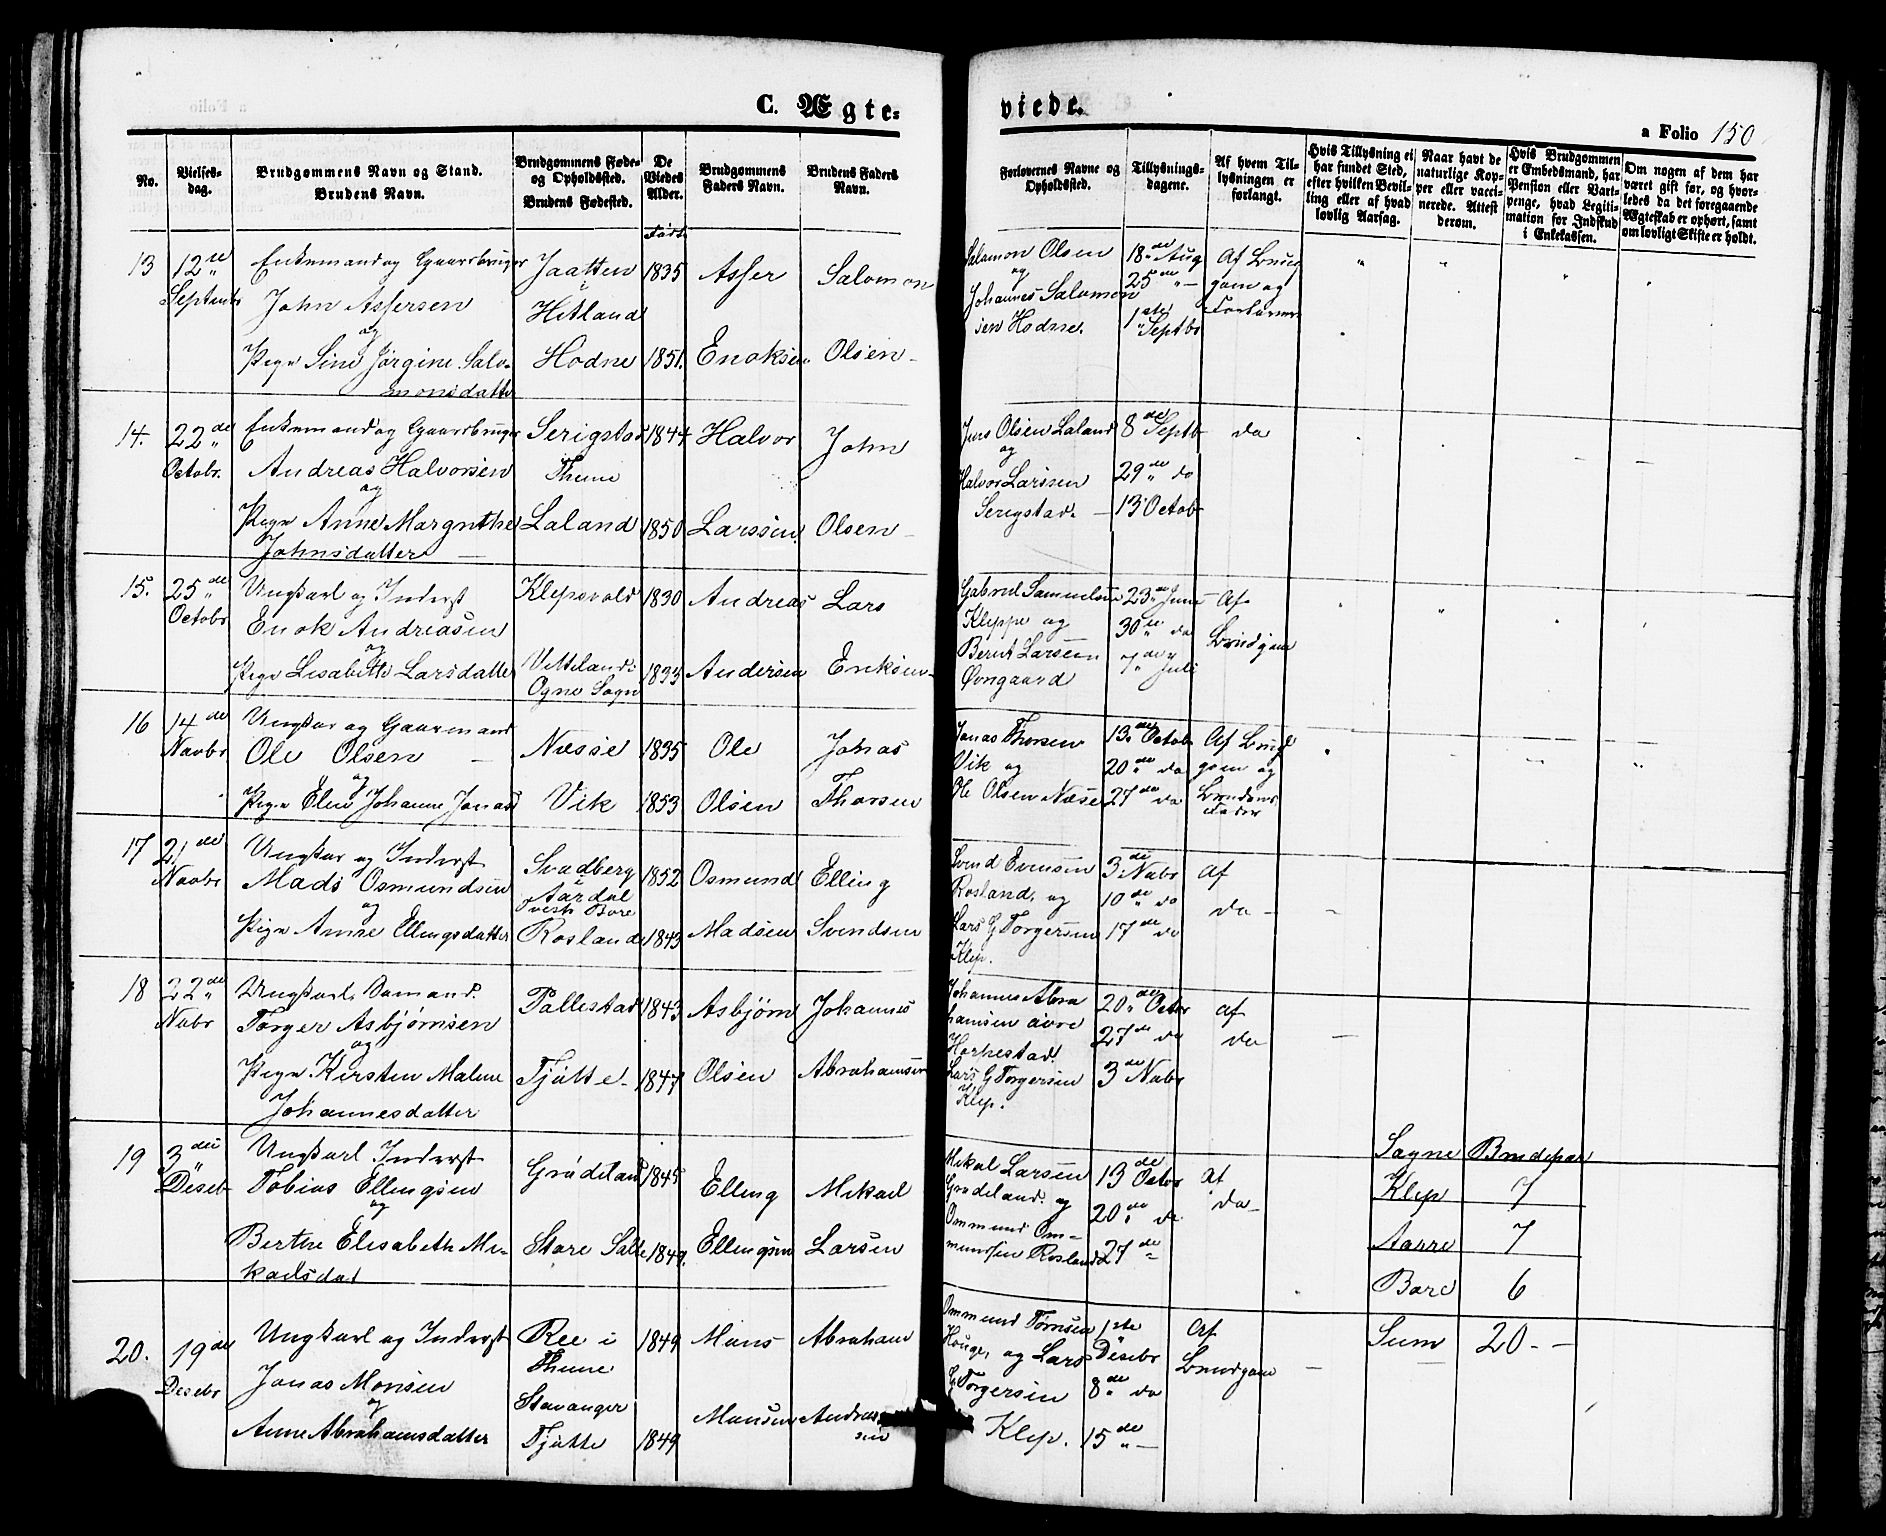 C. Ægte-
viede.
a Folio 150
No.
Vielses-
dag.
Brudgommens Navn og Stand.
Brudens Navn.
Brudgommens Føde-
og Opholdssted.
Brudens Fødested.
De
Viedes
Alder.
Brudgommens
Faders Navn.
Brudens Faders
Navn.
Forlovernes Navne og
Opholdssted.
Tillysnings-
dagene.
Af hvem Til-
lysningen er
forlangt.
Hvis Tillysning ei
har fundet Sted,
efter hvilken Bevil-
ling eller af hvad
lovlig Aarsag.
Naar havt de
naturlige Kop-
per eller vacci-
nerede. Attest
derom.
Hvis Brudgommen
er Embedsmand, har
Pension eller Vart-
penge, hvad Legiti-
mation for Indskud
i Enkekassen.
Om nogen af dem har
været gift før, og hvor-
ledes da det foregaaende
Ægteskab er ophørt, samt
om lovligt Skifte er holdt.
Født
13
12te
Septemb
Enkemand og Gaardbruger
John Assersen
og
Pige Sine Jørgine Salo-
monsdatter
Jaatten
i
Hetland
Hodne
1835
1851.
Asser
Enoksen
Salomon
Olsen
Salamon Olsen
og
Johannes Salomon
sen Hodne.
18de Aug
25de " —
1ste Septbr
Af Brud
gom og
Forlover
14.
22de
Octobr.
Enkemand og Gaardbruger
Andreas Halvorsen
og
Pige Anne Margrethe
Johnsdatter
Serigstad
Thime
Laland
1844
1850
Halvor
Larssen
John
Olsen
Jens Olsen Laland
og
Halvor Larssen
Serigstad.
8de Septb
29de do
13 Octob
da
15.
25de
Octobr
Ungkarl og Inderst
Enok Andreasen
og
Pige Lisabette Larsdatter
Klepsvold
Vetteland
Ogne Sogn
1830
1833
Andreas
Andersen
Lars
Eriksen
Gabriel Samuelsen
Kleppe og
Bernt Larsen
Øvngaard
23de June
30te do
7de Juli
Af
Brudgom
16
14de
Novbr
Ungkar og Gaarmand
Ole Olsen
og
Pige Elen Johanne Jonasd
Næsse
Vik
1835
1853
Ole
Olsen
Jonas
Thorsen
Jonas Thorsen
Vik og
Ole Olsen Næse
13de Octob
20de do
27de do
Af Brud
gom og
Brudens
Fader
17
21de
Novbr
Ungkar og Inderst
Mads Osmundsen
og
Pige Anne Ellingsdatter
Svadberg
i
Aardal
vest Bore
Rosland
1852
1843
Osmund
Madsen
Elling
Svendsen
Svend Evensen
Rosland, og
Lars G Torgersen
Klep.
3de Nobr
10de do
17de do
Af
da
18
22de
Nobr
Ungkarl
Torger Asbjørnsen
og
Pige Kirsten Malene
Johannesdatter
Pallestad
Tjøtte
1843
1847
Asbjørn
Olsen
Johannes
Abrahamsen
Johannes Abra
hamsen øvre
Horpestad.
Lars G Torgersen
Klep.
20de Octbr
27de do
3de Nobr
af
da
19
3die
Deseb
Ungkarl Inderst
Tobias Ellingsen
og
Berthe Elisabeth Mi-
kaelsdat
Grødeland
Store Salte
1845
1849.
Elling
Ellingsen
Mikael
Larsen
Mikal Larsen
Grødeland. og
Ommund Om-
mundsen Rosland
13de Octbr
20de do
27de "
af
da
Sogne Brudepar
Klep 7
Aarre 7
Bore 6
Sum 20
20.
19de
Desebr
Ungkarl og Inderst
Jonas Monsen
og
Anne Abrahamsdatter
Ree i
Thime
Stavanger
Tjøtte
1849
1849
Mons
Monsen
Abraham
Andreas
sen
Ommund Tørresen
Houge, og Lars
G Torgersen
Klep.
1ste
Desebr
8de do
15de "
Af
Brudgom